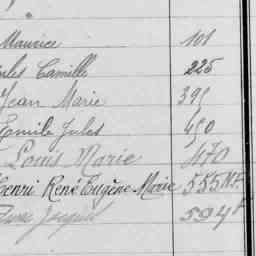 Maurice 101
Jules Camille 225
Jean Marie 395
Emile Jules 450
Louis Marie 470
Henri René Eugène Marie 555 N.F.
594 F